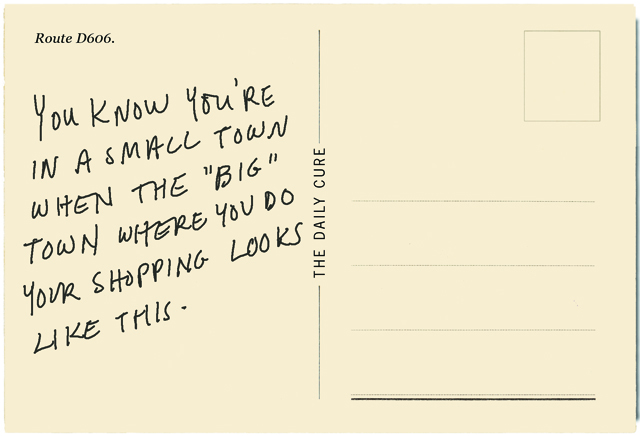 Route D606.
YOU KNOW YOU'RE
IN A SMALL TOWN
WHEN THE "BIG"
TOWN WHERE YOU DO
YOUR SHOPPING LOOKS
LIKE THIS.
THE DAILY CURE